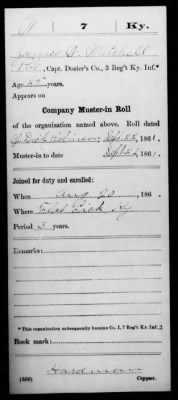 7 Ky.
Mitchell
Capt. Dozier's Co., 3 Reg't Ky. Inf.*
Age years.
Appears on
Company Muster-in Roll
of the organization named above. Roll dated
Camp Dick Robinson Sept 22, 1861.
Muster-in to date Sept 22, 1861.
Joined for duty and enrolled:
When 186 .
Where Ky
Period 3 years.
Remarks:
*This organization subsequently became Co. I, 7 Reg't Ky. Inf.
Book mark:
(356) Copyist.